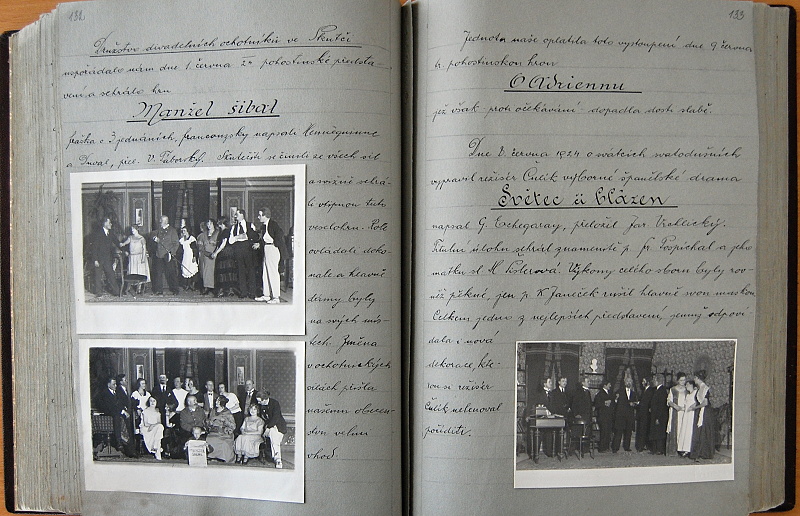 132
Družstvo divadelních ochotníků ve Skutči
uspořádalo nám dne 1. června 24 pohostinské předsta-
vení a sehrálo hru
Manžel šibal
fraška o 3 jednáních, francouzsky napsali Hennequinne
a Duval, přel. V. Táborský. Skutečtí se činili ze všech sil
a svižně sehrá-
li vtipnou tuto
veselohru. Role
ovládali doko-
nale a hlavně
dámy byly
na svých mís-
tech. Změna
v ochotnických
silách přišla
našemu obecen-
stvu velmi
vhod.
133
Jednota naše oplatila toto vystoupení dne 9. června
t. pohostinskou hrou
O Adriennu
jež však proti očekávání dopadla dosti slabě.
Dne 8. června 1924 o svátcích svatodušních
vypravil režisér Čulík výborné španělské drama
Světec či blázen
napsal G. Echegaray, přeložil Jar. Vrchlický.
Titulní úlohu sehrál znamenitě p. Fr. Pospíchal a jeho
matku sl. M. Výkony celého sboru byly rov-
něž pěkné, jen p. K. Janeček rušil hlavně svou maskou.
Celkem jedno z nejlepších představení, jemuž odpoví
dala i nová
dekorace, kte-
rou si režisér
Čulík nelenoval
pořídit.